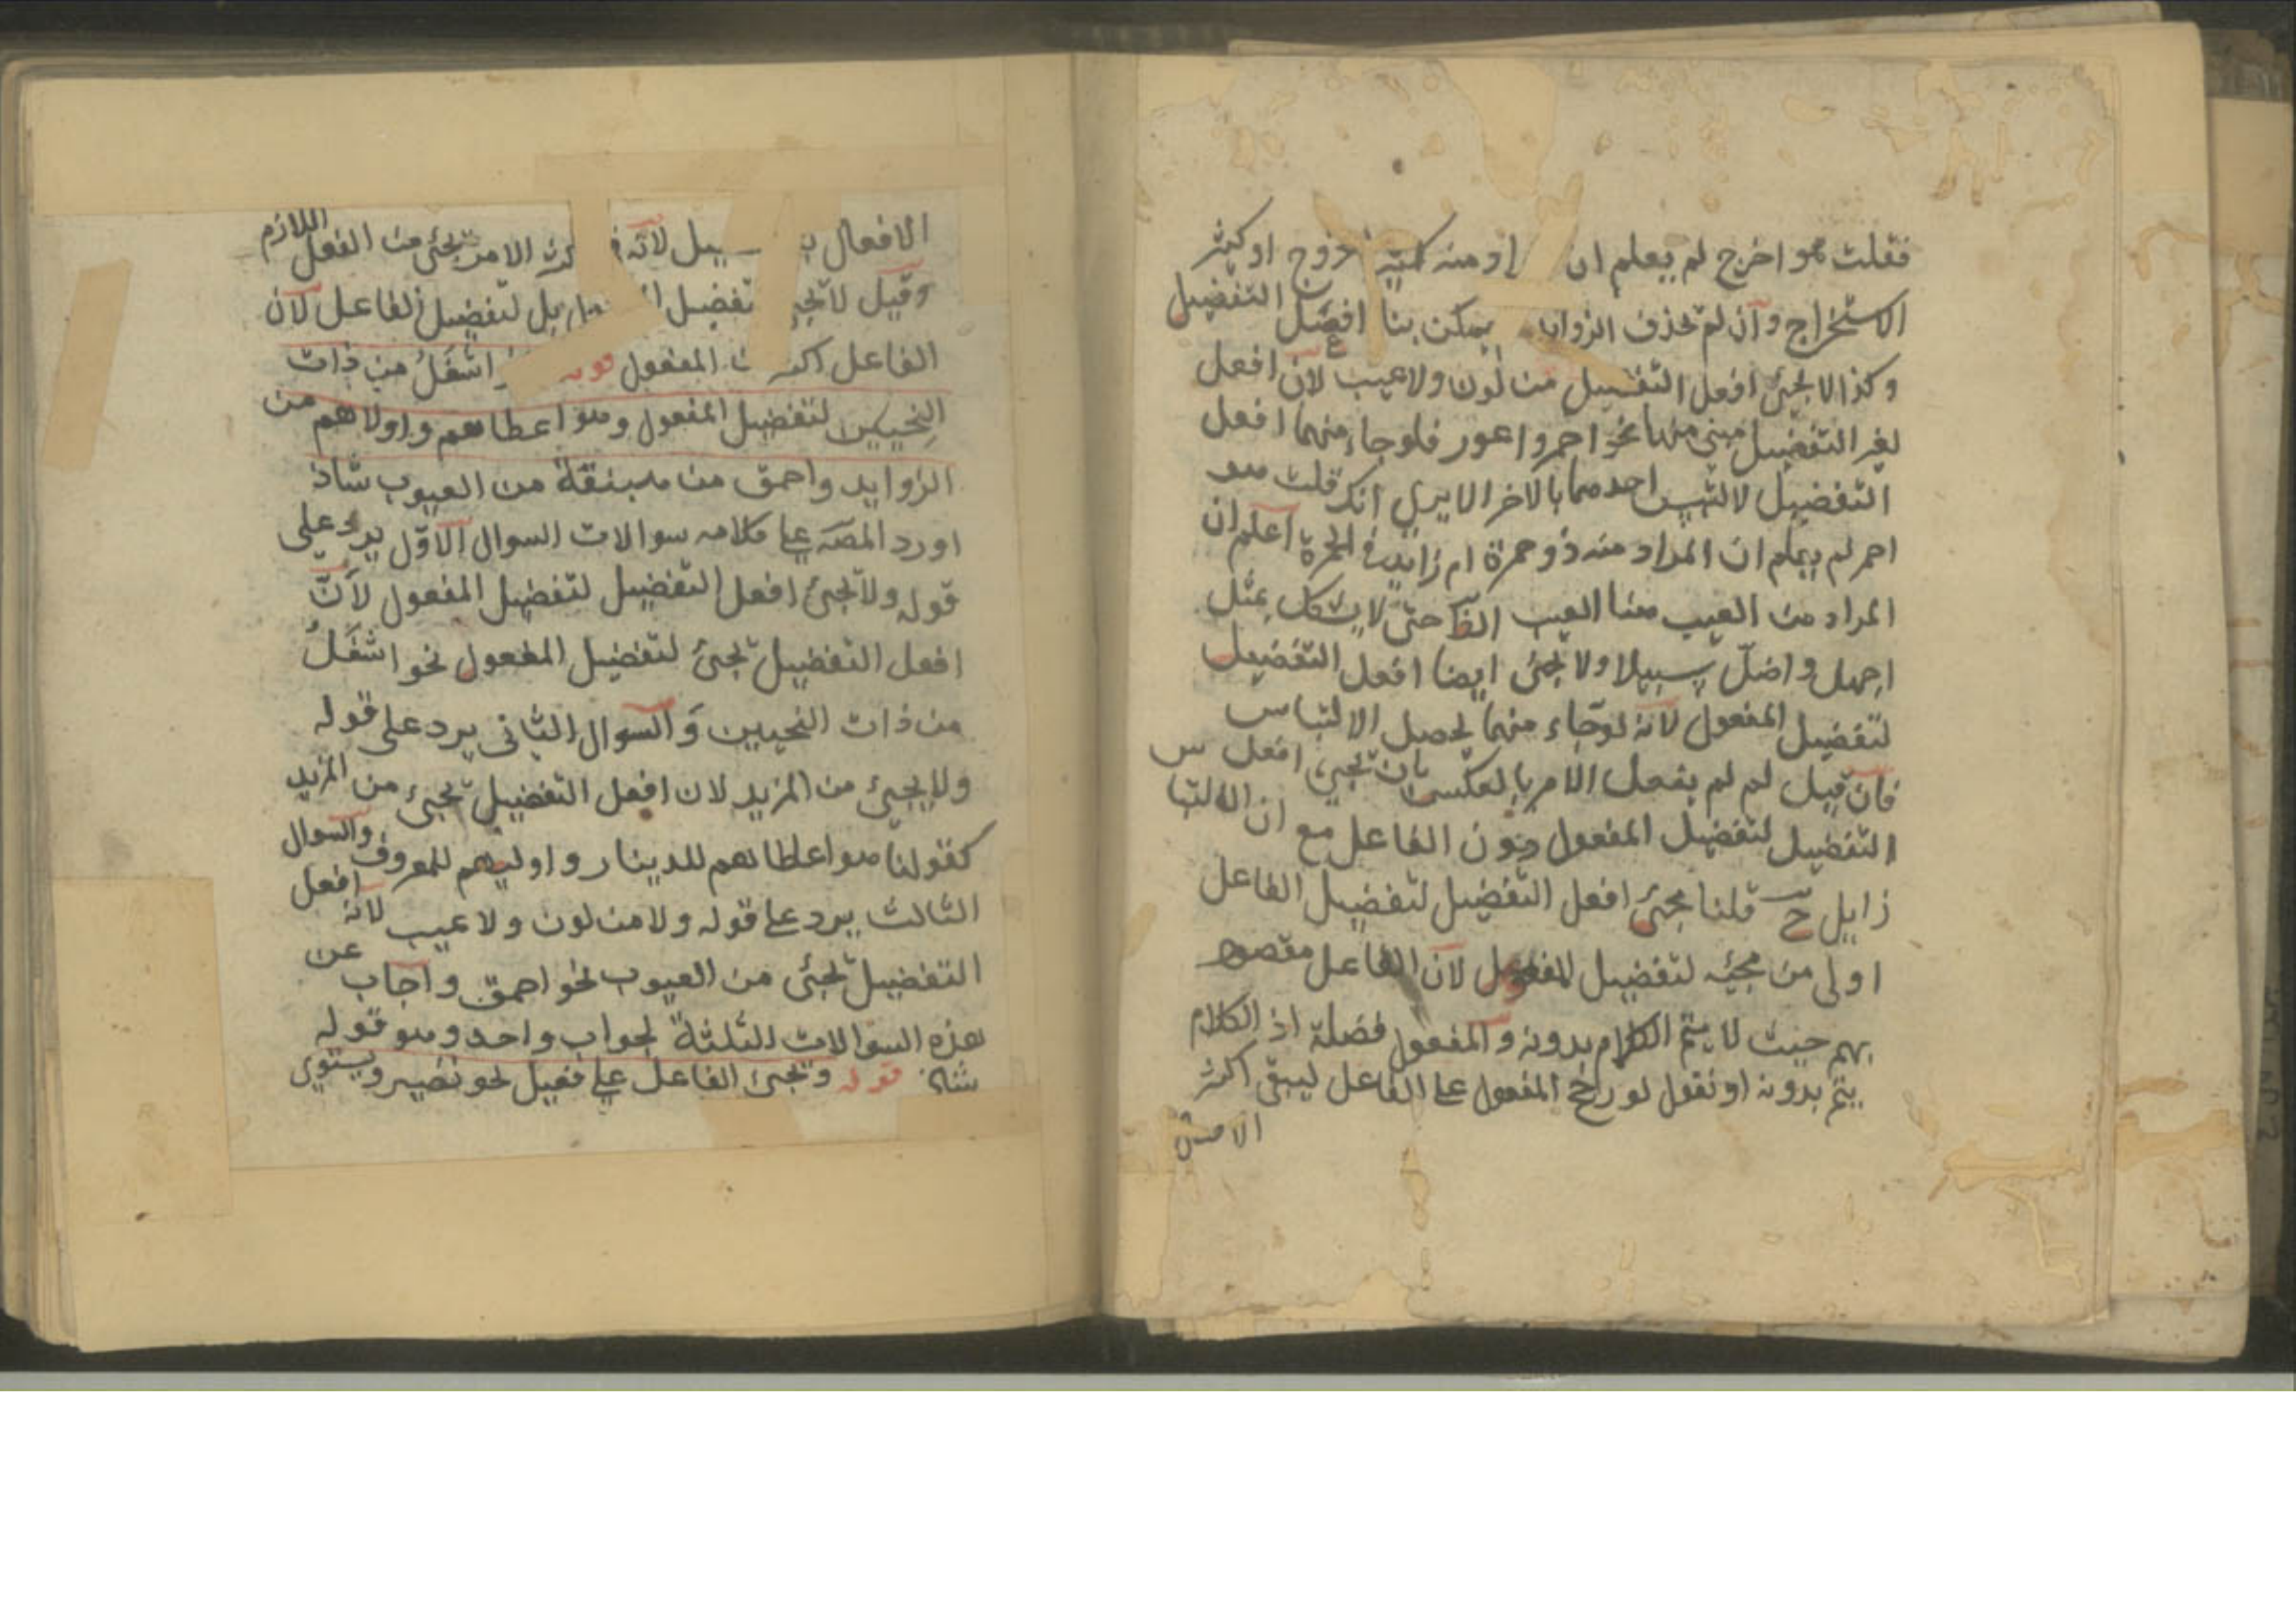 فقلت هو اخرج لم يعلم ان المراد منه كثير الخروج او كثير
الاستخراج وان لم تحذف الزوايد لم يمكن بنا افعل التفضيل
وكذا لا يجئ افعل التفضيل من لون ولا عيب لان افعل
لغير التفضيل مبني منهما نحو احمر واعور فلو جاء منهما افعل
التفضيل لالتبس احدهما بالاخر الا يرى انك قلت هو
احمر لم يعلم ان المراد منه ذو حمرة ام زائد في الحمرة اعلم ان
المراد من العيب هنا العيب الظا حتى لا يشكل بمثل
اجهل واضل سبيلا ولا يجئ ايضا افعل التفضيل
لتفضيل المفعول لانه لو جاء منهما يحصل الالتباس
فان قيل لم لم يفعل الامر بالعكس بان يجئ افعل
التفضيل لتفضيل المفعول دون الفاعل مع ان الالتباس
زايل ح قلنا مجئ افعل التفضيل لتفضيل الفاعل
اولى من مجيئه لتفضيل المفعول لان الفاعل مقصود
بهم حيث لا يتم الكلام بدونه والمفعول فضلة اذ الكلام
يتم بدونه او نقول لو رجح المفعول على الفاعل ليبقى اكثر
الافعال
الافعال بلا تفضيل لانه في اكثر الامر يجئ من الفعل اللازم
وقيل لا يجئ لتفضيل المفعول بل لتفضيل الفاعل لان
الفاعل اكثر من المفعول قوله اشغل من ذات
النحيين لتفضيل المفعول وهو اعطاهم واولاهم من
الزوايد واحمق من هبنقة من العيوب شاذ
اورد المصه على كلامه سوالات السوال الاول يرد على
قوله ولا يجئ افعل التفضيل لتفضيل المفعول لان
افعل التفضيل يجئ لتفضيل المفعول نحو اشغل
من ذات النحيين والسوال الثاني يرد على قوله
ولا يجئ من المزيد لان افعل التفضيل يجئ من المزيد
كقولنا هو اعطاهم للدينار واوليهم للمعروف والسوال
الثالث يرد على قوله ولا من لون ولا عيب لانه افعل
التفضيل يجئ من العيوب نحو احمق واجاب عن
هذه السوالات الثلثة بجواب واحد وهو قوله
شاذ قوله ويجئ الفاعل على فعيل نحو نصير ويستوي